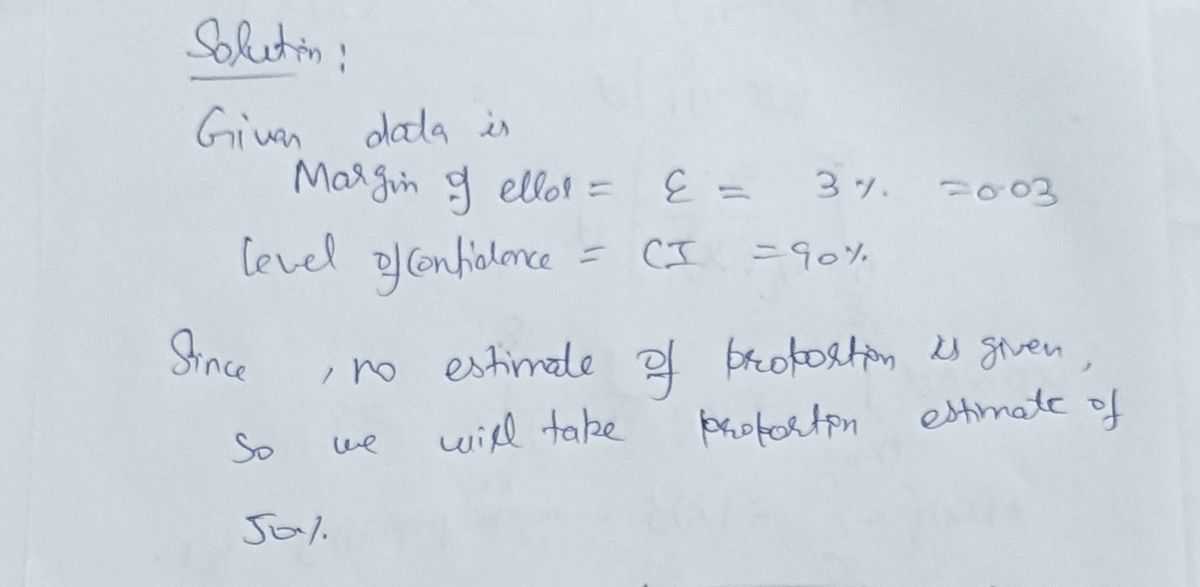 Solution :
Given data is
Margin of error = ε = 3 % = 0.03
level of confidence = CI = 90%
Since , no estimate of proportion is given ,
So we will take proportion estimate of
50%.